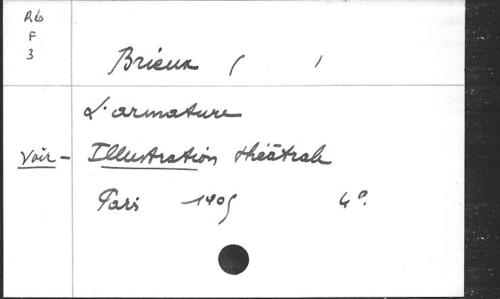 Rés
F
3
Brieux ( )
L'armature
Voir - Illustration théâtrale
Paris 1905 4°.